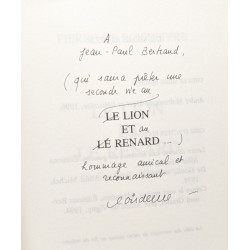 A
Jean-Paul Bertrand,
(qui saura prêter une
seconde vie au
LE LION
ET au
LE RENARD ...)
hommage amical et
reconnaissant